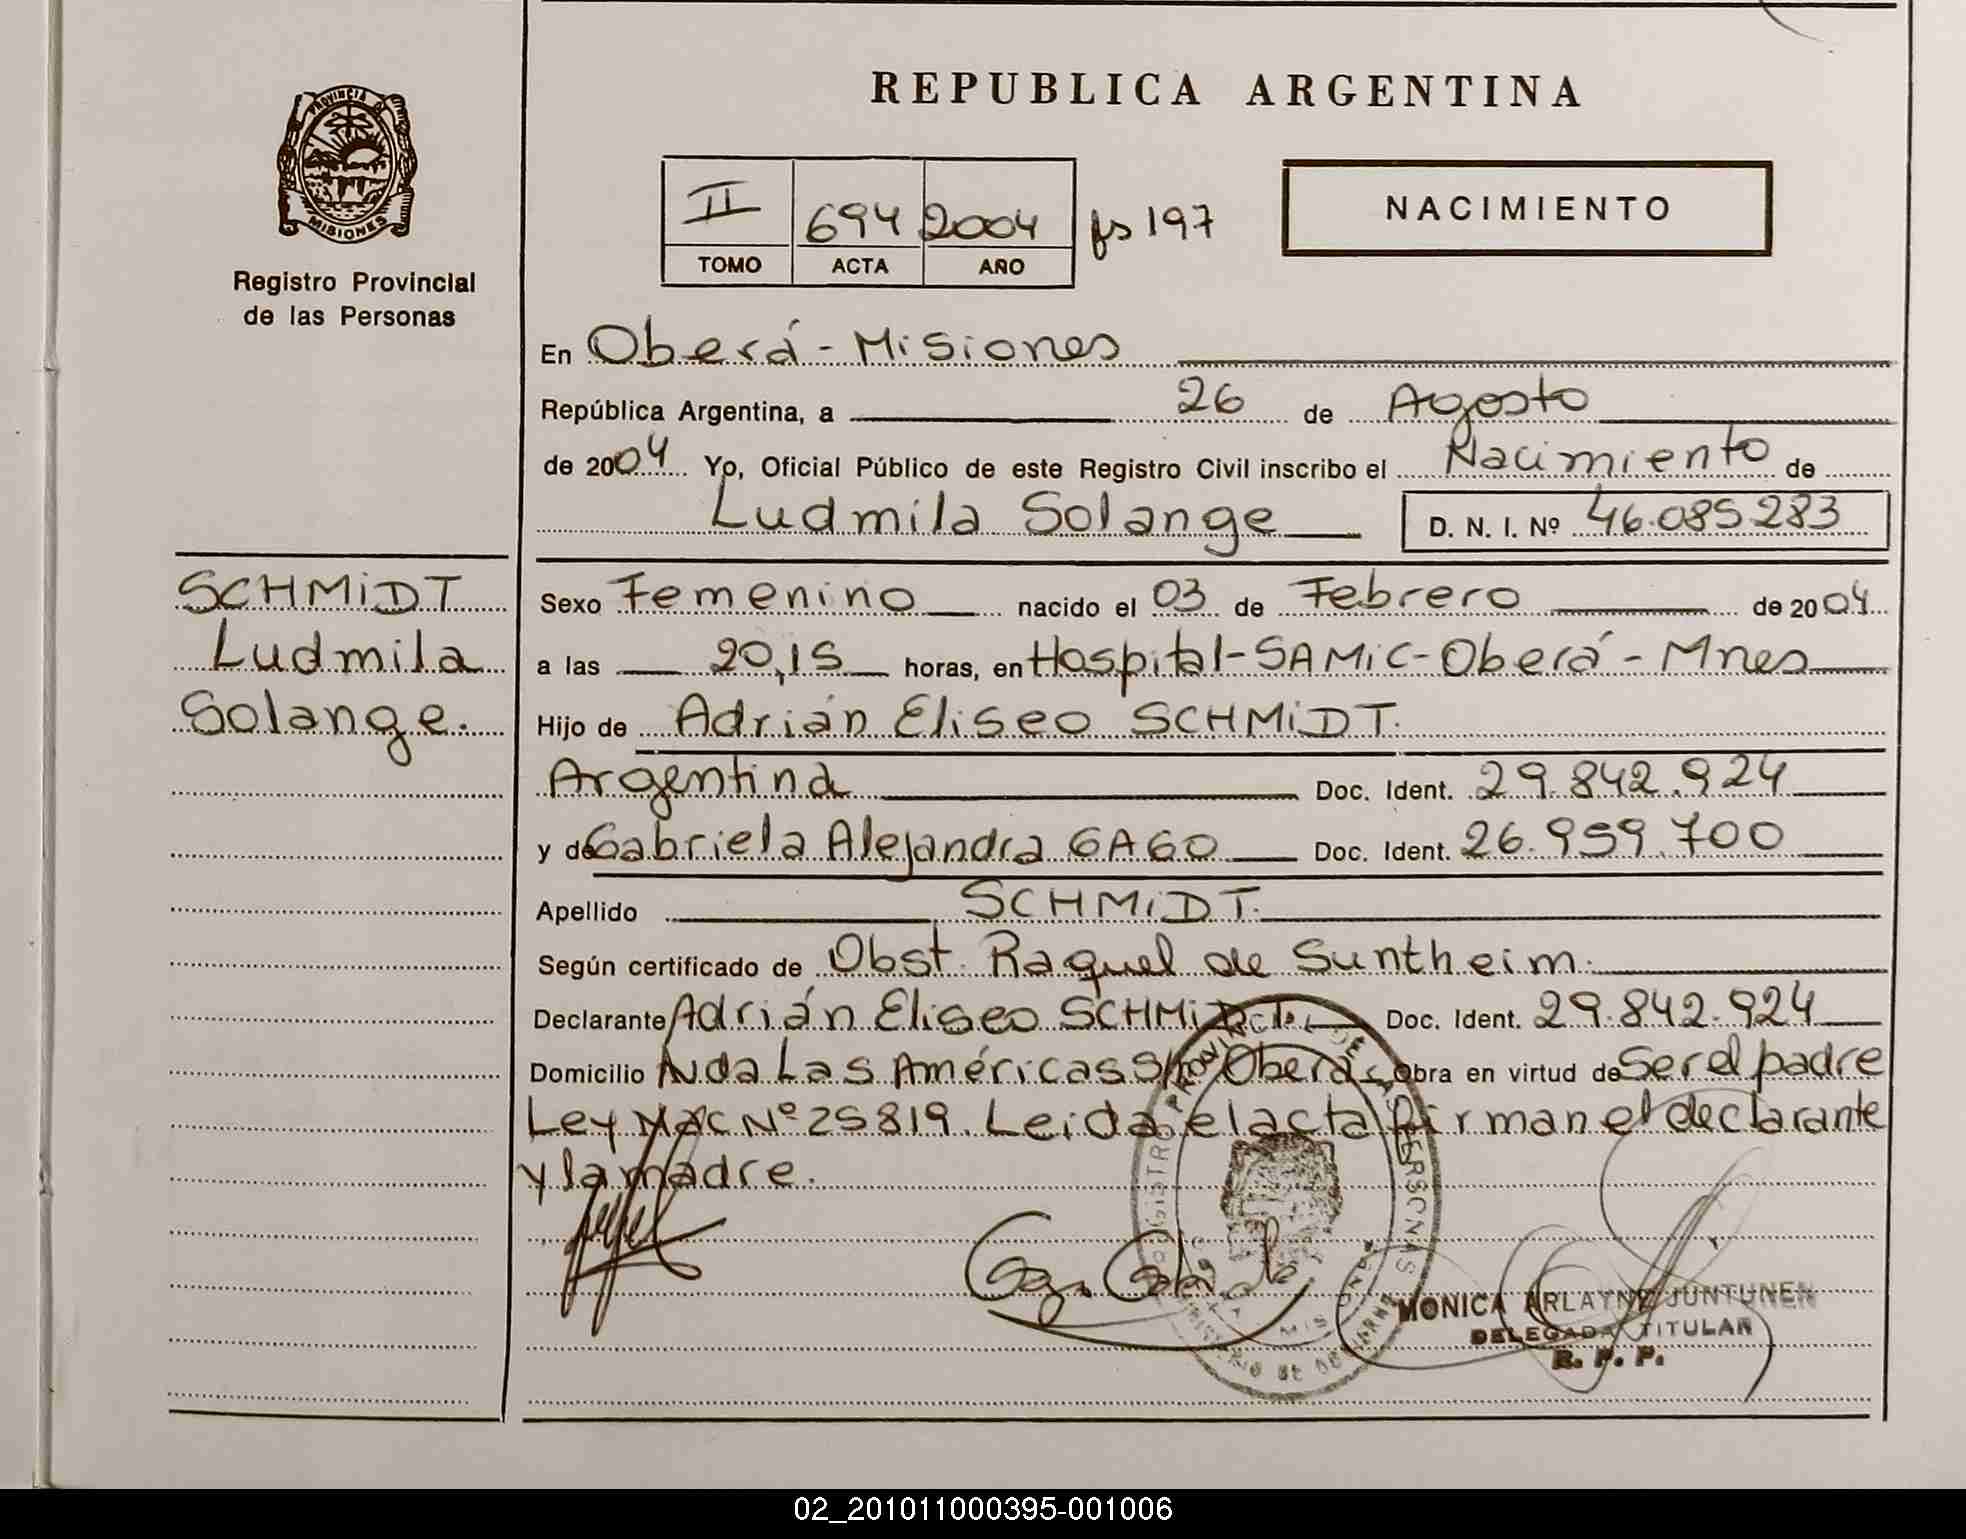 REPUBLICA ARGENTINA
PROVINCIA DE
MISIONES
Registro Provincial
de las Personas
II 694 2004 fs 197
TOMO ACTA AÑO
NACIMIENTO
En Oberá - Misiones
República Argentina, a 26 de Agosto
de 2004 Yo, Oficial Público de este Registro Civil inscribo el Nacimiento de
Ludmila Solange D. N. I. Nº 46.085.283
SCHMIDT
Ludmila
Solange.
Sexo Femenino nacido el 03 de Febrero de 2004
a las 20,15 horas, en Hospital-SAMIC-Oberá - Mnes
Hijo de Adrián Eliseo SCHMIDT.
Argentina Doc. Ident. 29.842.924
y de Gabriela Alejandra GAGO Doc. Ident. 26.959.700
Apellido SCHMIDT.
Según certificado de Obst. Raquel de Suntheim.
Declarante Adrián Eliseo SCHMIDT. Doc. Ident. 29.842.924
Domicilio Avda Las Américas S/nº Oberá Obra en virtud de Ser el padre
Ley Nº 25819. Leida el acta firman el declarante
y la madre.
MONICA ARLAYNE JUNTUNEN
DELEGADA TITULAR
R. P. P.
02_201011000395-001006